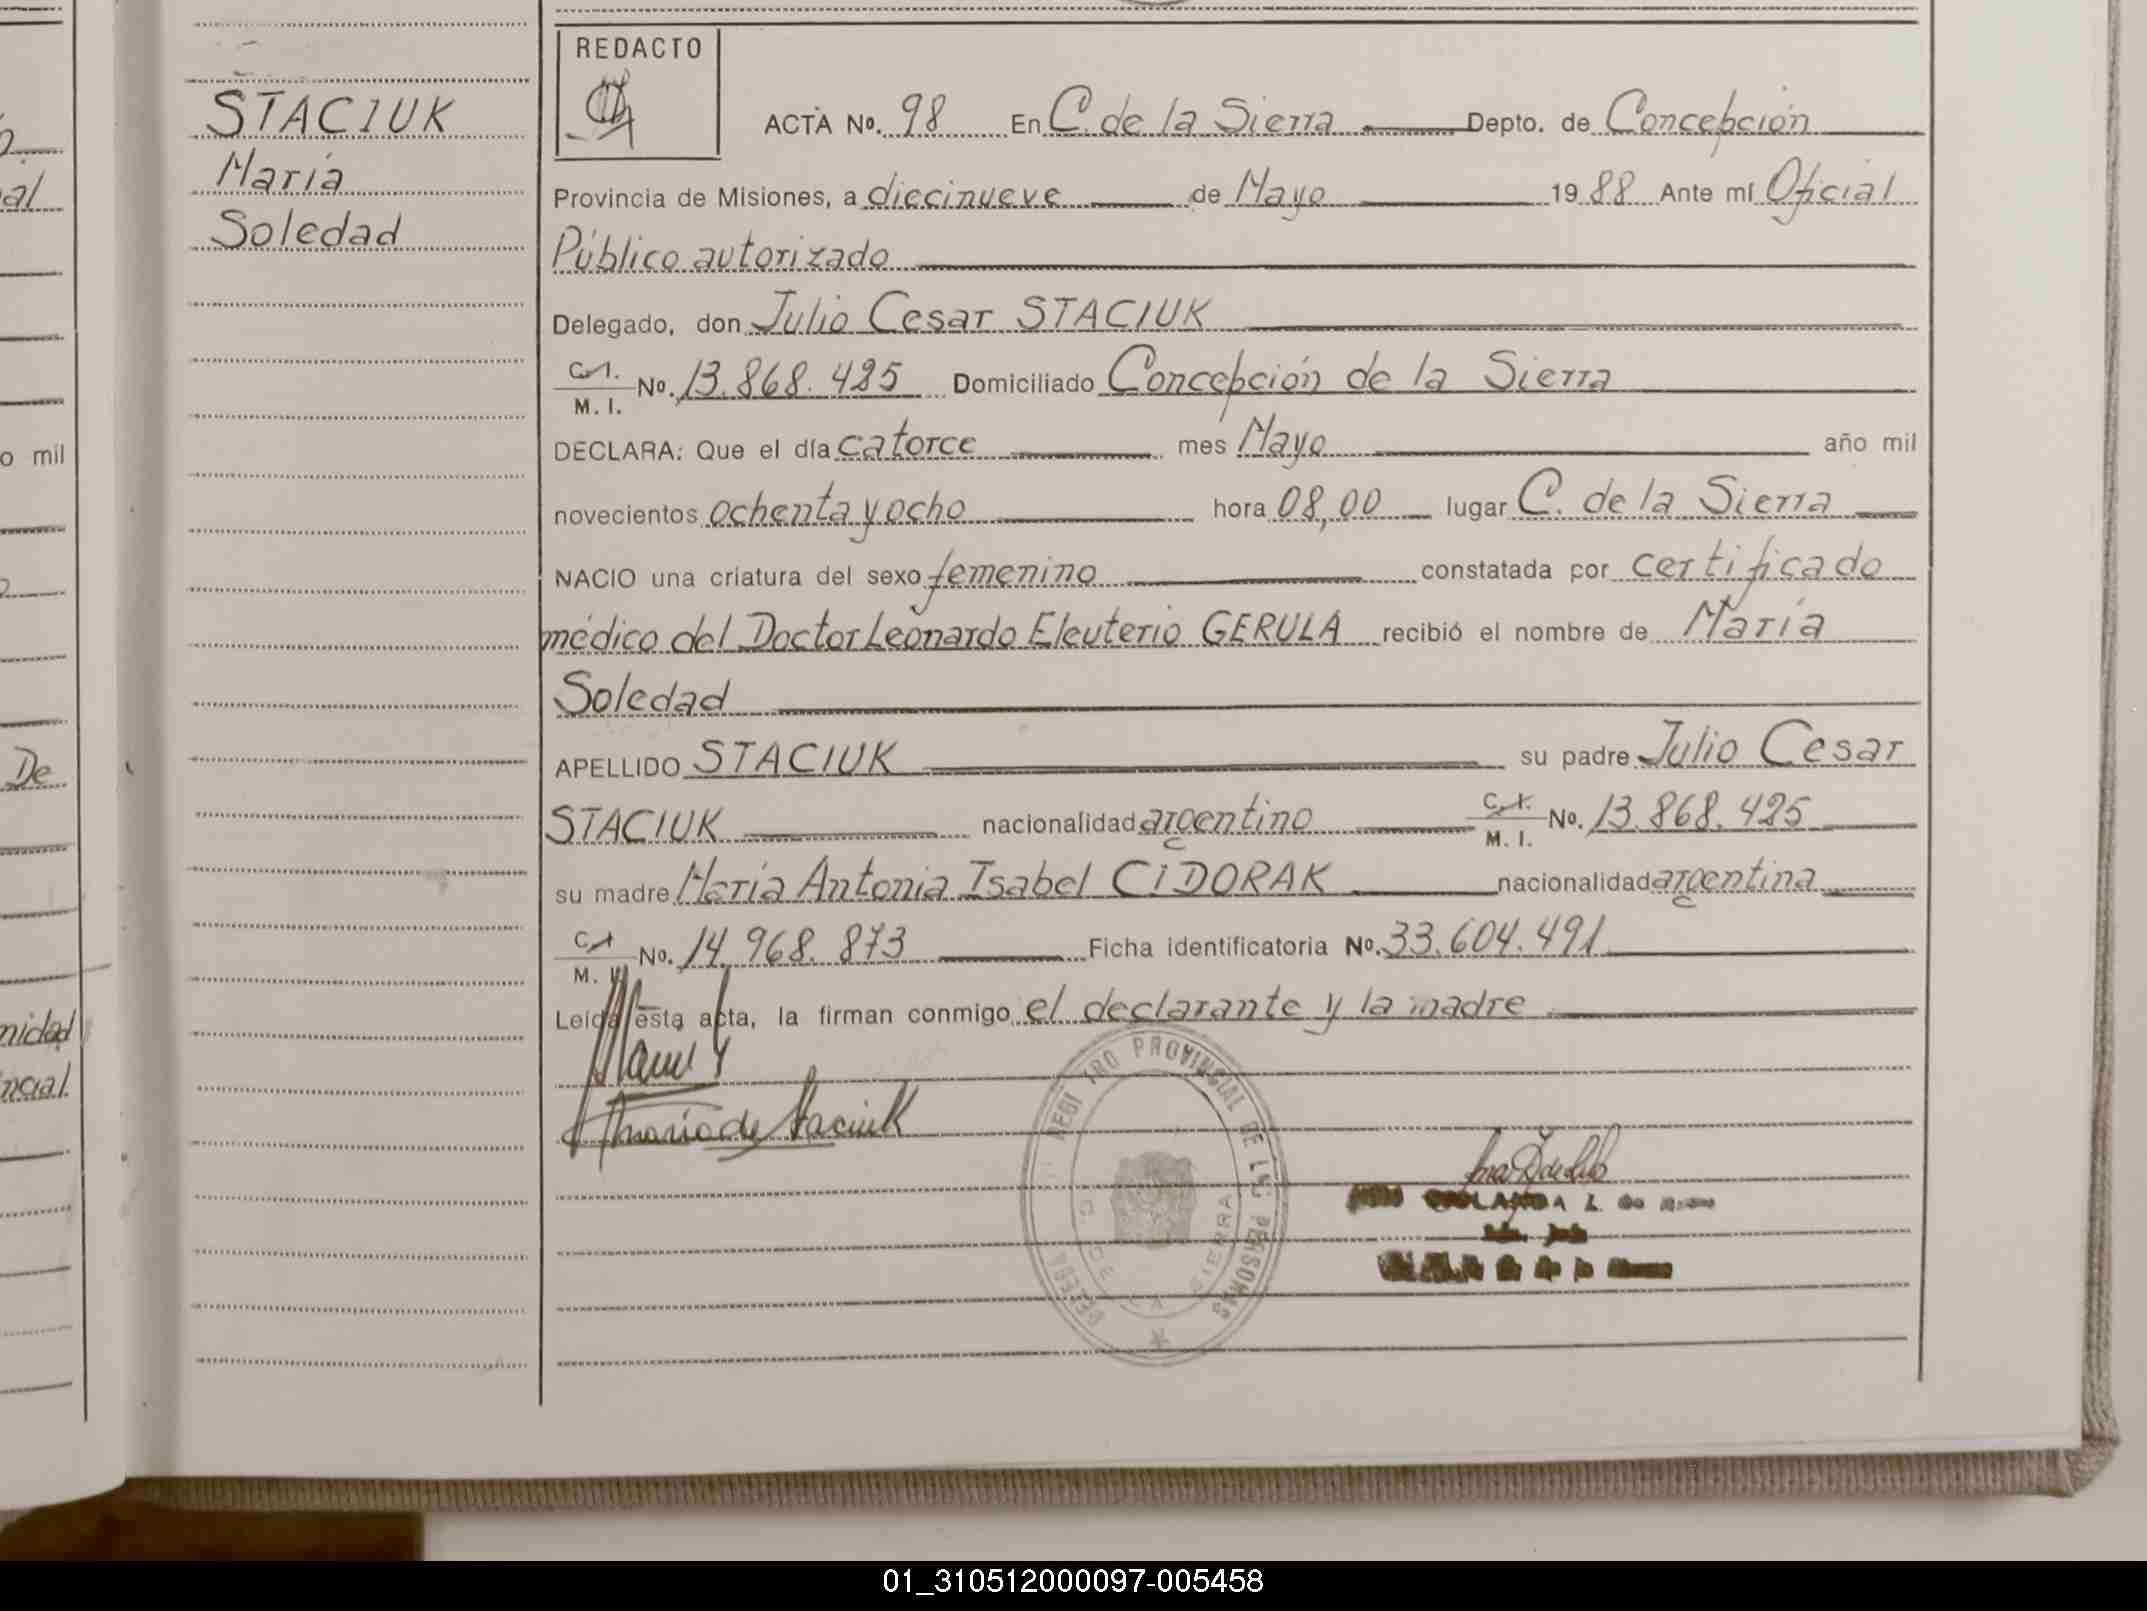 STACIUK
María
Soledad
REDACTO
ACTA No. 98 En C. de la Sierra Depto. de Concepción
Provincia de Misiones, a diecinueve de Mayo 1988 Ante mí Oficial
Público autorizado
Delegado, don Julio Cesar STACIUK
C. I. M. I. No. 13.868.425 Domiciliado Concepción de la Sierra
DECLARA: Que el día catorce mes Mayo año mil
novecientos ochenta y ocho hora 08,00 lugar C. de la Sierra
NACIO una criatura del sexo femenino constatada por certificado
médico del Doctor Leonardo Eleuterio GERULA recibió el nombre de María
Soledad
APELLIDO STACIUK su padre Julio Cesar
STACIUK nacionalidad argentino C. I. M. I. No. 13.868.425
su madre María Antonia Isabel CIDORAK nacionalidad argentina
C. I. M. I. No. 14.968.873 Ficha identificatoria No. 33.604.491
Leída esta acta, la firman conmigo el declarante y la madre
María de Staciuk
REGISTRO PROVINCIAL DE LAS PERSONAS
C. DE LA SIERRA
o mil
De
01_310512000097-005458